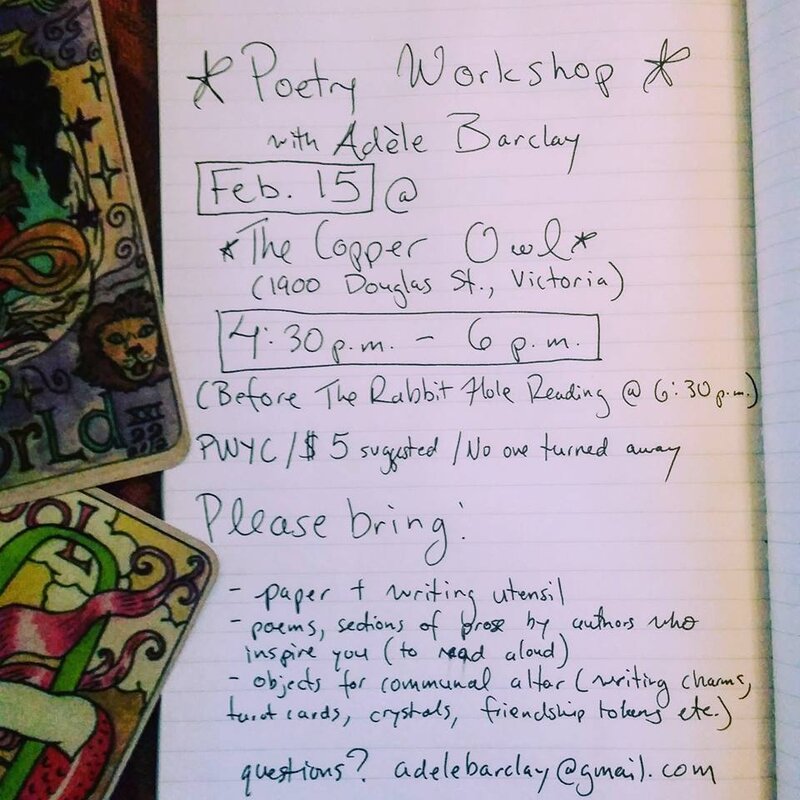 *Poetry Workshop*
with Adèle Barclay
Feb. 15 @
*The Copper Owl*
(1900 Douglas St., Victoria)
4:30 p.m. - 6 p.m.
(Before The Rabbit Hole Reading @ 6:30 p.m.)
PWYC/$5 suggested/No one turned away
Please bring:
- paper + writing utensil
- poems, sections of prose by authors who
inspire you (to read aloud)
- objects for communal altar (writing charms,
tarot cards, crystals, friendship tokens etc.)
questions? adelebarclay@gmail.com
orLd
XXI